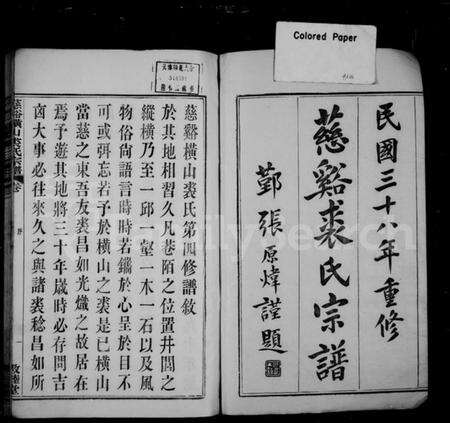 Colored Paper
民國三十年重修
慈谿裘氏宗譜
鄞張原煒謹題
慈谿橫山裘氏第四修譜敘
於其地相習久凡巷陌之位置井閭之
縱橫乃至一邱一壑一木一石以及風
物俗尚語言時時若鑴於心呈於目不
可或弭忘若予於橫山之裘是已橫山
當慈之東吾友裘昌如光熾之故居在
焉予遊其地將三十年歲時必存問吉
凶大事必往來久之與諸裘稔昌如所
慈谿橫山裘氏宗譜
卷
序
一
敦睦堂